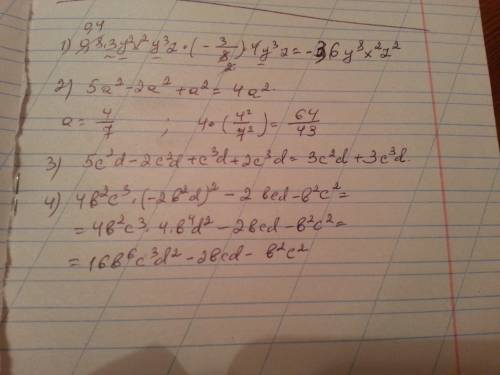 94
1) 9 8·3y²x²y³z · (-3/8) 4y³z = -3,6y⁸x²z²
2) 5a² - 2a² + a² = 4a².
a = 4/7 ; 4·(4²/7²) = 64/43
3) 5c²d - 2c²d + c³d + 2c³d = 3c²d + 3c³d.
4) 4b²c³·(-2b²d)² - 2bcd - b²c² =
= 4b²c³·4·b⁴d² - 2bcd - b²c² =
= 16b⁶c³d² - 2bcd - b²c²